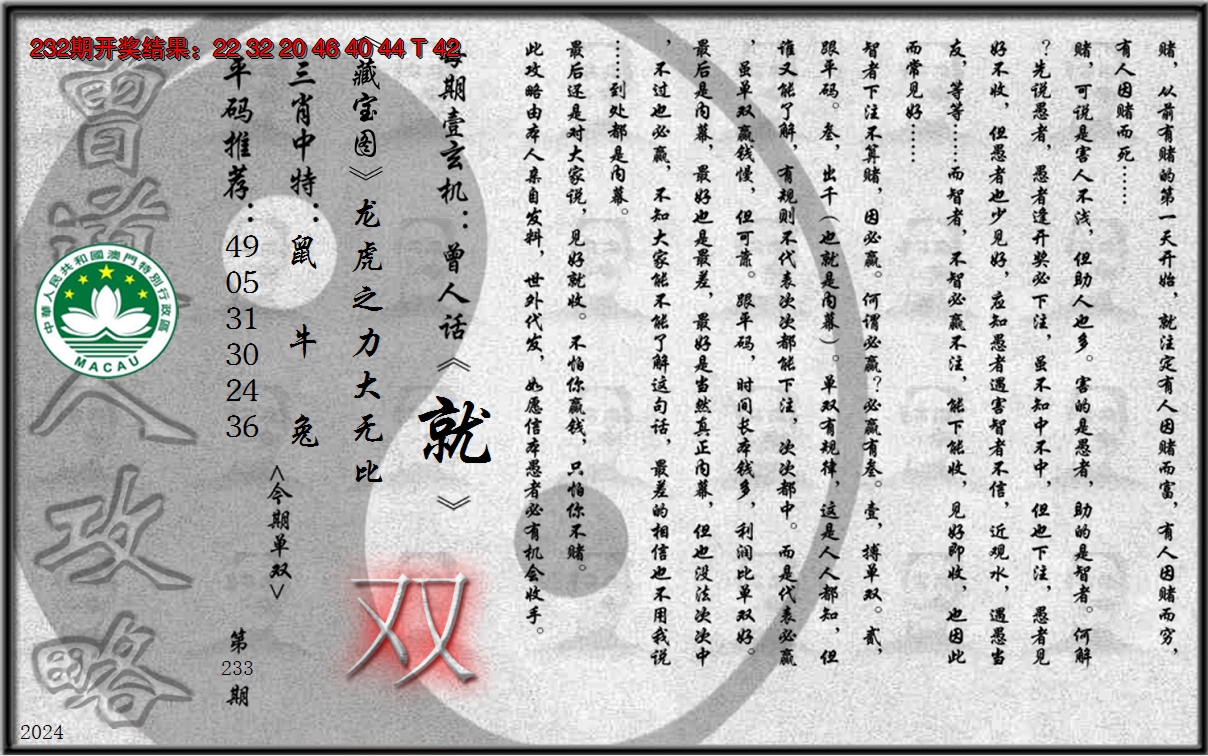 232期开奖结果：22 32 20 46 40 44 T 42
赌，从前有赌的第一天开始，就注定有人因赌而富，有人因赌而穷，
有人因赌而死……
赌，可说是害人不浅，但助人也多。害的是愚者，助的是智者。何解
？先说愚者，愚者逢开奖必下注，虽不知中不中，但也下注，愚者见
好不收，但愚者也少见好，应知愚者遇害智者不信，近观水，遇愚当
友，等等……而智者，不智必赢不注，能下能收，见好即收，也因此
而常见好……
智者下注不算赌，因必赢。何谓必赢？必赢有叁。壹，搏单双。贰，
跟平码。叁，出千（也就是内幕）。单双有规律，这是人人都知，但
谁又能了解，有规则不代表次次都能下注，次次都中。而是代表必赢
，虽单双赢钱慢，但可靠。跟平码，时间长本钱多，利润比单双好。
最后是内幕，最好也是最差，最好是当然真正内幕，但也没法次次中
，不过也必赢，不知大家能不能了解这句话，最差的相信也不用我说
……到处都是内幕。
最后还是对大家说，见好就收。不怕你赢钱，只怕你不赌。
此攻略由本人亲自发料，世外代发，如愿信本愚者必有机会收手。
每期壹玄机：曾人话《就》
《藏宝图》龙虎之力大无比
双
三肖中特：鼠 牛 兔
<今期单双>
平码推荐：
49
05
31
30
24
36
第
233
期
曾道人攻略
中華人民共和國澳門特別行政區
MACAU
2024